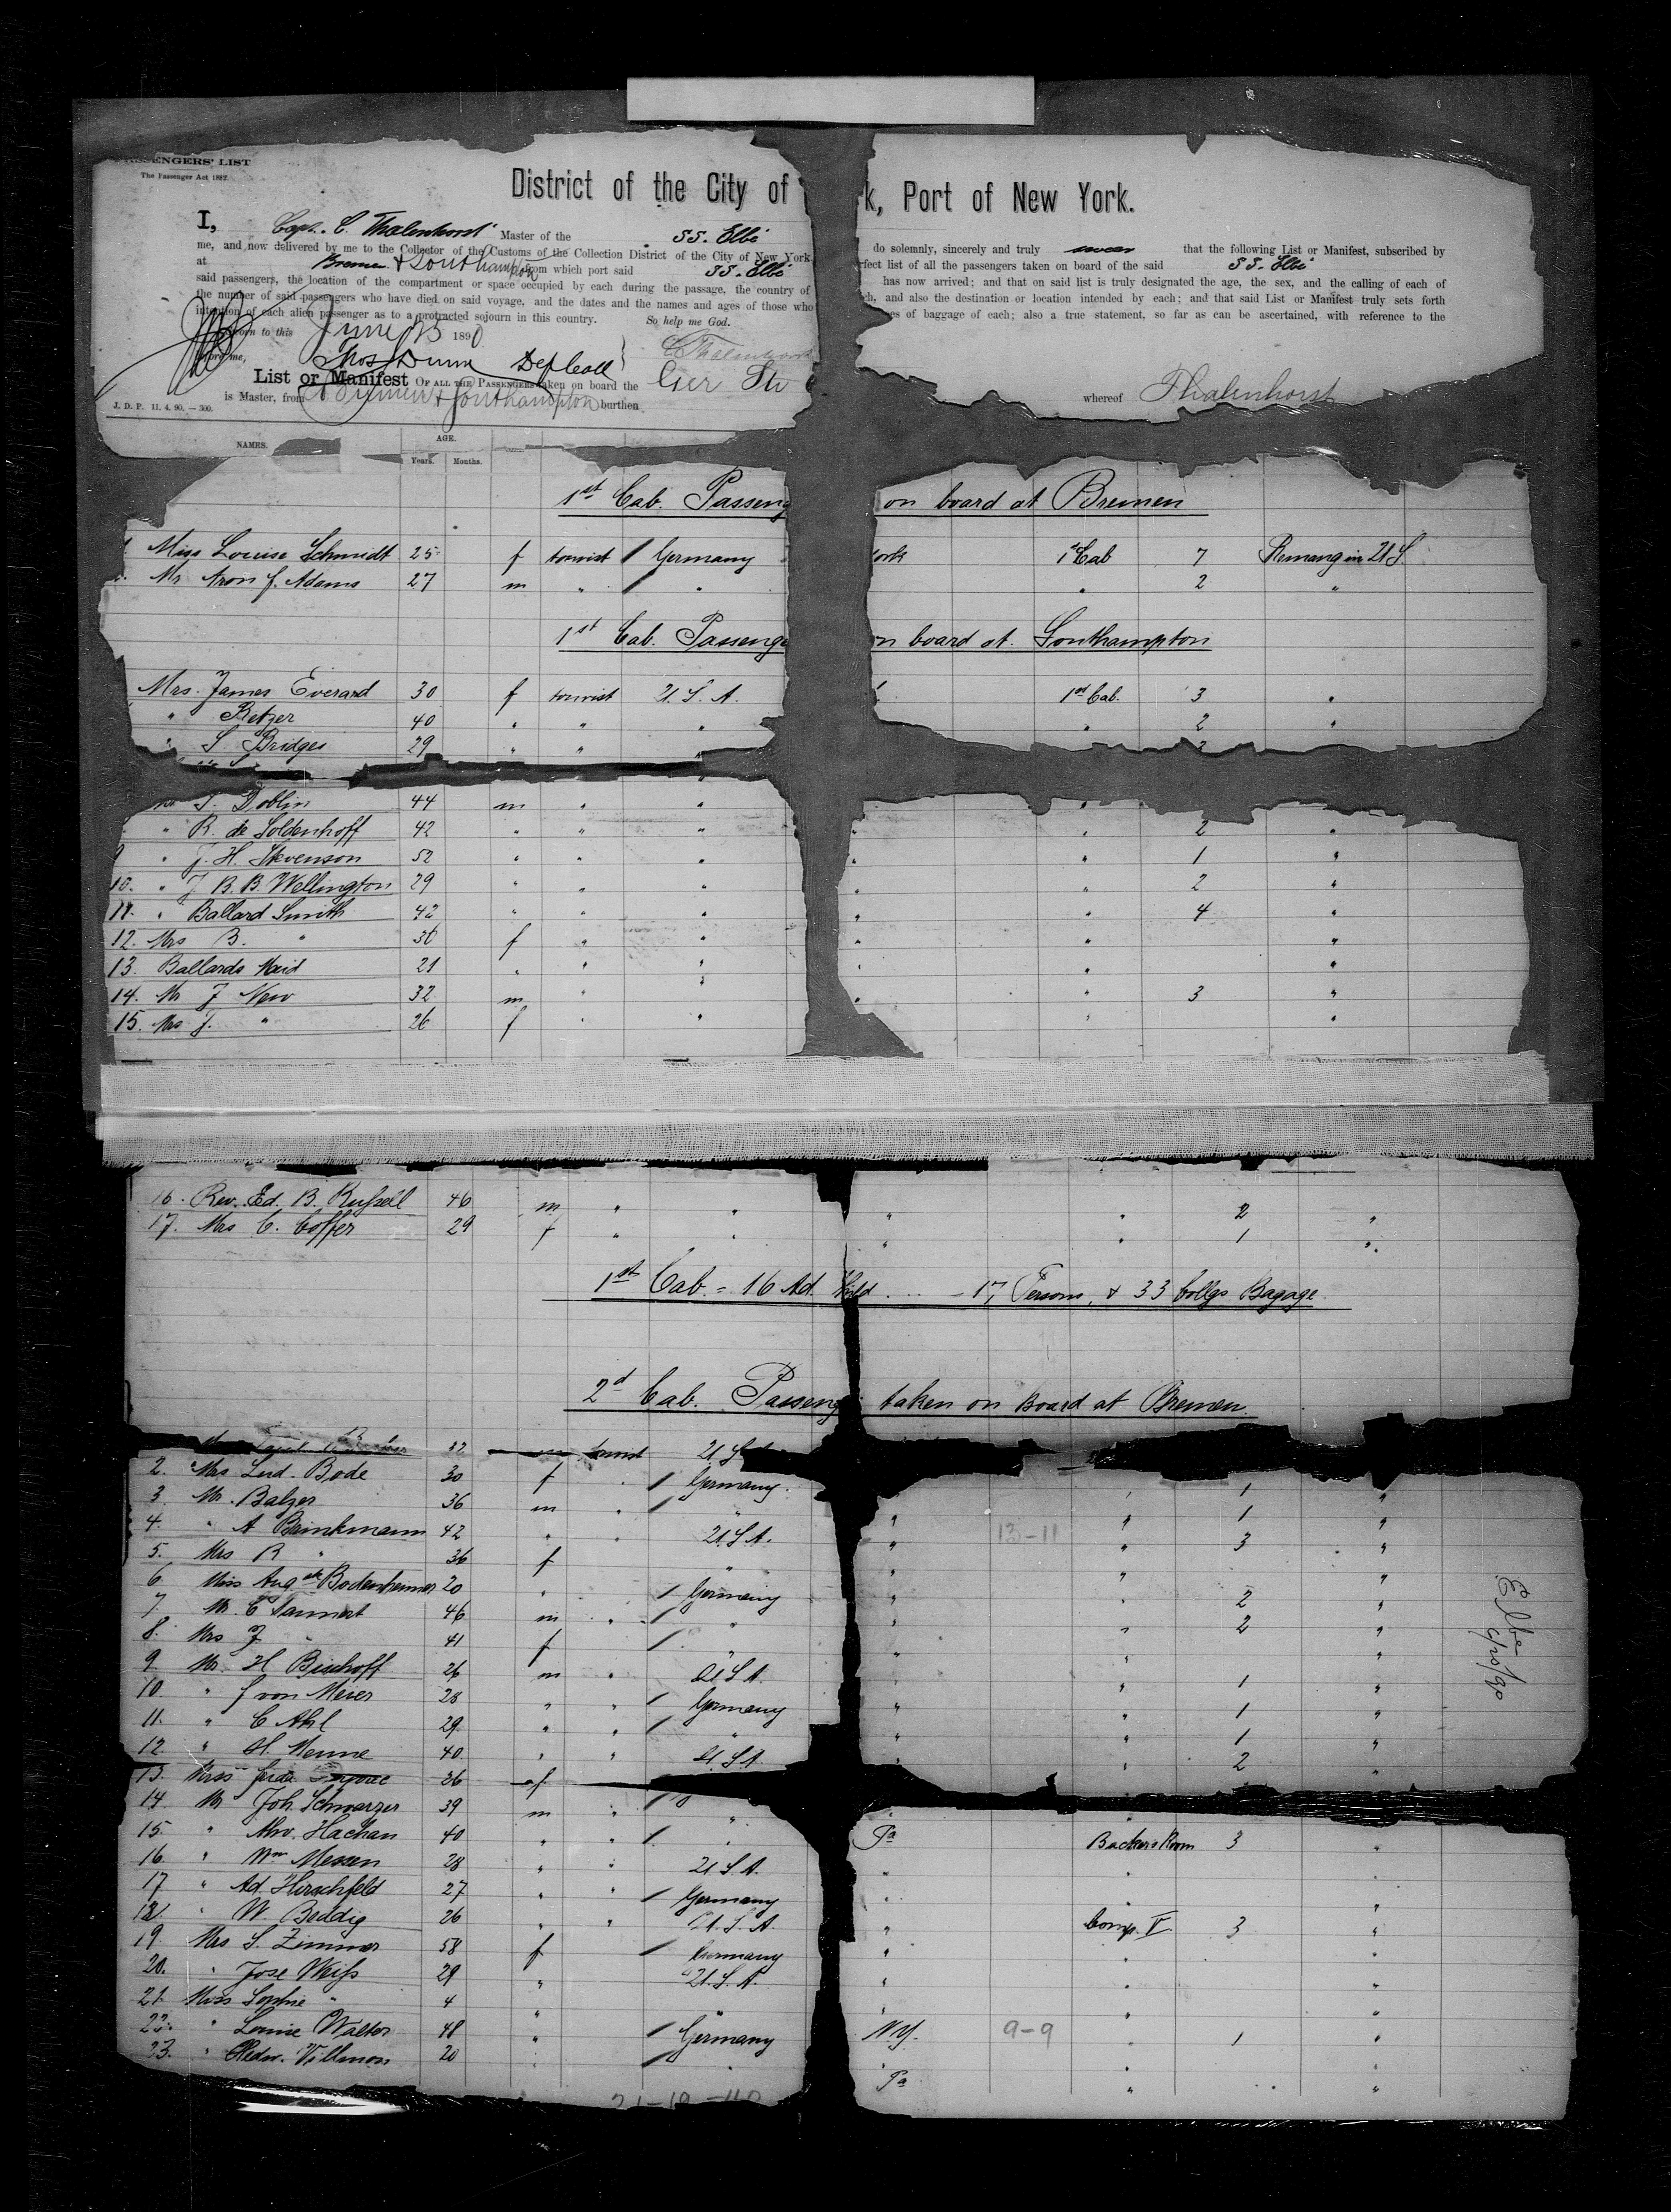 PASSENGERS' LIST
The Passenger Act 1882.
District of the City of k, Port of New York.
I, Capt. C. Thalenhorst Master of the SS. Elbe do solemnly, sincerely and truly swear that the following List or Manifest, subscribed by
me, and now delivered by me to the Collector of the Customs of the Collection District of the City of New York rfect list of all the passengers taken on board of the said SS. Elbe
at Bremen & Southampton from which port said SS. Elbe has now arrived; and that on said list is truly designated the age, the sex, and the calling of each of
said passengers, the location of the compartment or space occupied by each during the passage, the country of ch, and also the destination or location intended by each; and that said List or Manifest truly sets forth
the number of said passengers who have died on said voyage, and the dates and the names and ages of those who es of baggage of each; also a true statement, so far as can be ascertained, with reference to the
intention of each alien passenger as to a protracted sojourn in this country. So help me God.
Sworn to this June 1890
before me, Thos Dunn Dep Coll C Thalenhorst
List or Manifest OF ALL THE PASSENGERS taken on board the Ger Str
is Master, from Bremen & Southampton burthen whereof Thalenhorst
J. D. P. 11. 4. 90. — 300.
NAMES. AGE.
Years. Months.
1st Cab. Passeng on board at Bremen
Miss Louise Schmidt 25 f tourist / Germany ork 1st Cab 7 Remang in U.S.
Mr Aron J. Adams 27 m " / " " 2 "
1st Cab. Passenge n board at Southampton
Mrs. James Everard 30 f tourist U.S.A. 1st Cab. 3 "
" Betzer 40 " " " " 2 "
" S. Bridges 29 " " "
Doblin 44 m " " "
" R. de Soldenhoff 42 " " " " " 2 "
9 " J. H. Stevenson 52 " " " " " 1 "
10. " J. B. B. Wellington 29 " " " " " 2 "
11. " Ballard Smith 42 " " " " " 4 "
12. Mrs B. " 30 f " " " " "
13. Ballards Maid 21 " " " " " "
14. Mr J New 32 m " " " " 3 "
15. Mrs J. " 26 f " " " "
16. Rev. Ed. B. Russell 46 m " " " " 2 "
17. Mrs C. Coffer 29 f " " " " 1 "
1st Cab. = 16 Ad. hild - 17 Persons, & 33 Collgs Bagage
2d Cab. Passeng taken on Board at Bremen
32 tourist U.S.
2. Mrs Lud. Bode 30 f " / Germany " 1 "
3. Mr. Balzer 36 m " / " " " 1 "
4. " A Brinkmann 42 " " U.S.A. " 13-11 " 3 "
5. Mrs R " 36 f " " " "
6. Miss Auguste Bodenheimer 20 " / Germany " " 2 "
7. Mr. C Tannert 46 m " / " " " 2 "
8. Mrs J " 41 f / " " " "
9. Mr. H Bischoff 26 m " U.S.A. " 1 "
10. " J von Meier 28 " " / Germany " " 1 "
11. " C Ahl 29 " " / " " " 1 "
12. " H. Menne 40 " " U.S.A. " " 2 "
13. Miss 26 f
14. Mr Joh. Schwarzer 39 m " "
15. " Hachan 40 " " / " Pa Backers Room 3 "
16. " Wm Messen 28 " " U.S.A. " "
17. " Ad. Hirschfeld 27 " " / Germany " " "
18. " W. Beddig 26 " " U.S.A. " Comp. V 3 "
19. Mrs S. Zimmer 58 f / Germany " " "
20. " Jose Weiss 29 " " U.S.A. " " "
21. Miss Sophie " 4 " " " " "
22. " Louise Walter 48 " / Germany N.Y. 9-9 " 1 "
23. " Hedw. Villmon 20 " / " Pa " "
Elbe